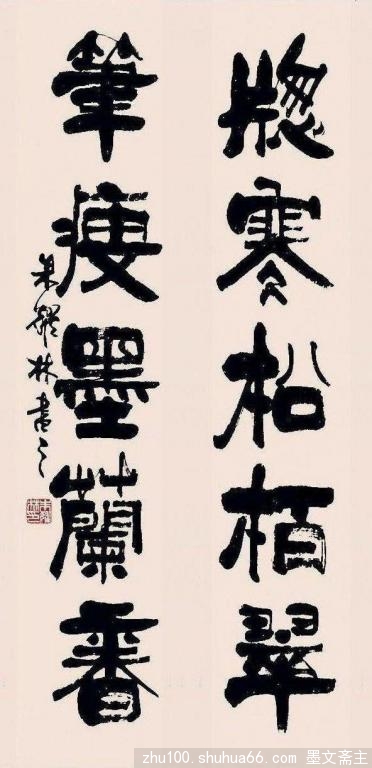 牕寒松栢翠
筆瘦墨蘭香
林書之
zhu100.shuhua66.com 墨文斋主